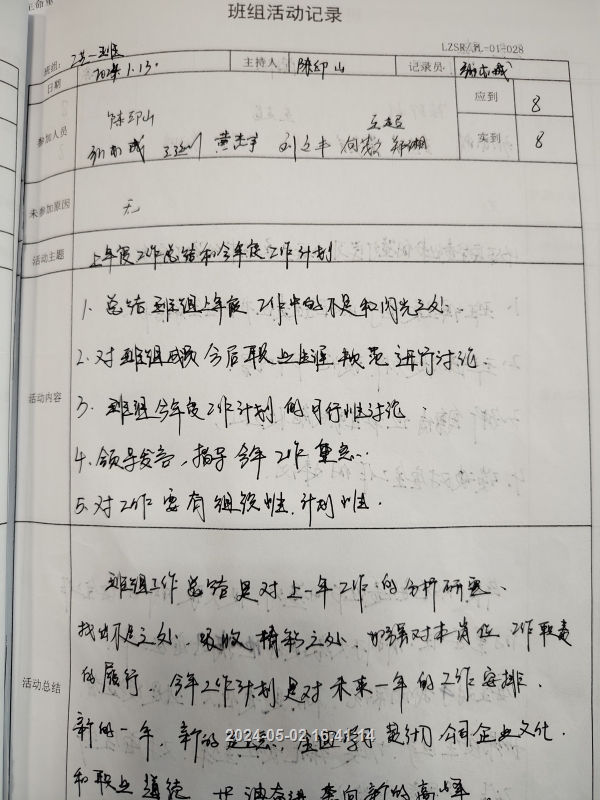 班组活动记录
LZSR/JL-01-028
班组: 2号一班
日期 2024.1.13. 主持人 陈印山 记录员
参加人员 陈印山 王超
黄杰宇 刘立丰 郑湘
应到 8
实到 8
未参加原因 无
活动主题 上年度工作总结和今年度工作计划
活动内容
1. 总结班组上年度工作中的不足和闪光之处
2. 对班组成员今后职业生涯规范进行讨论.
3. 班组今年度工作计划的可行性讨论.
4. 领导发言, 指导今年工作重点.
5. 对工作要有组织性. 计划性.
活动总结
班组工作总结是对上一年工作的分析研究、
找出不足之处, 吸收精彩之处, 加强对本岗位工作职责
的履行. 今年工作计划是对未来一年的工作安排.
新的一年, 新的起点, 学习 公司企业文化.
和职业道德 奔向新的高峰
2024-05-02 16:41:14